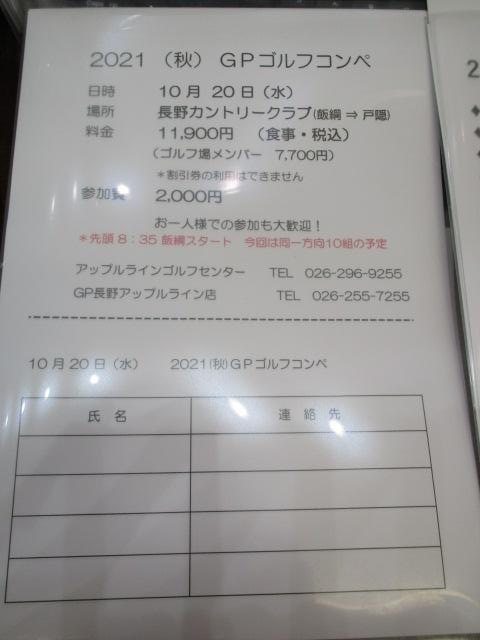 2021 （秋） ＧＰゴルフコンペ
日時 10月 20日（水）
場所 長野カントリークラブ(飯綱 ⇒ 戸隠)
料金 11,900円 （食事・税込）
（ゴルフ場メンバー 7,700円）
＊割引券の利用はできません
参加費 2,000円
お一人様での参加も大歓迎！
＊先頭 8：35 飯綱スタート 今回は同一方向10組の予定
アップルラインゴルフセンター TEL 026-296-9255
GP長野アップルライン店 TEL 026-255-7255
10月20日（水） 2021(秋)ＧＰゴルフコンペ
氏 名 連 絡 先
2